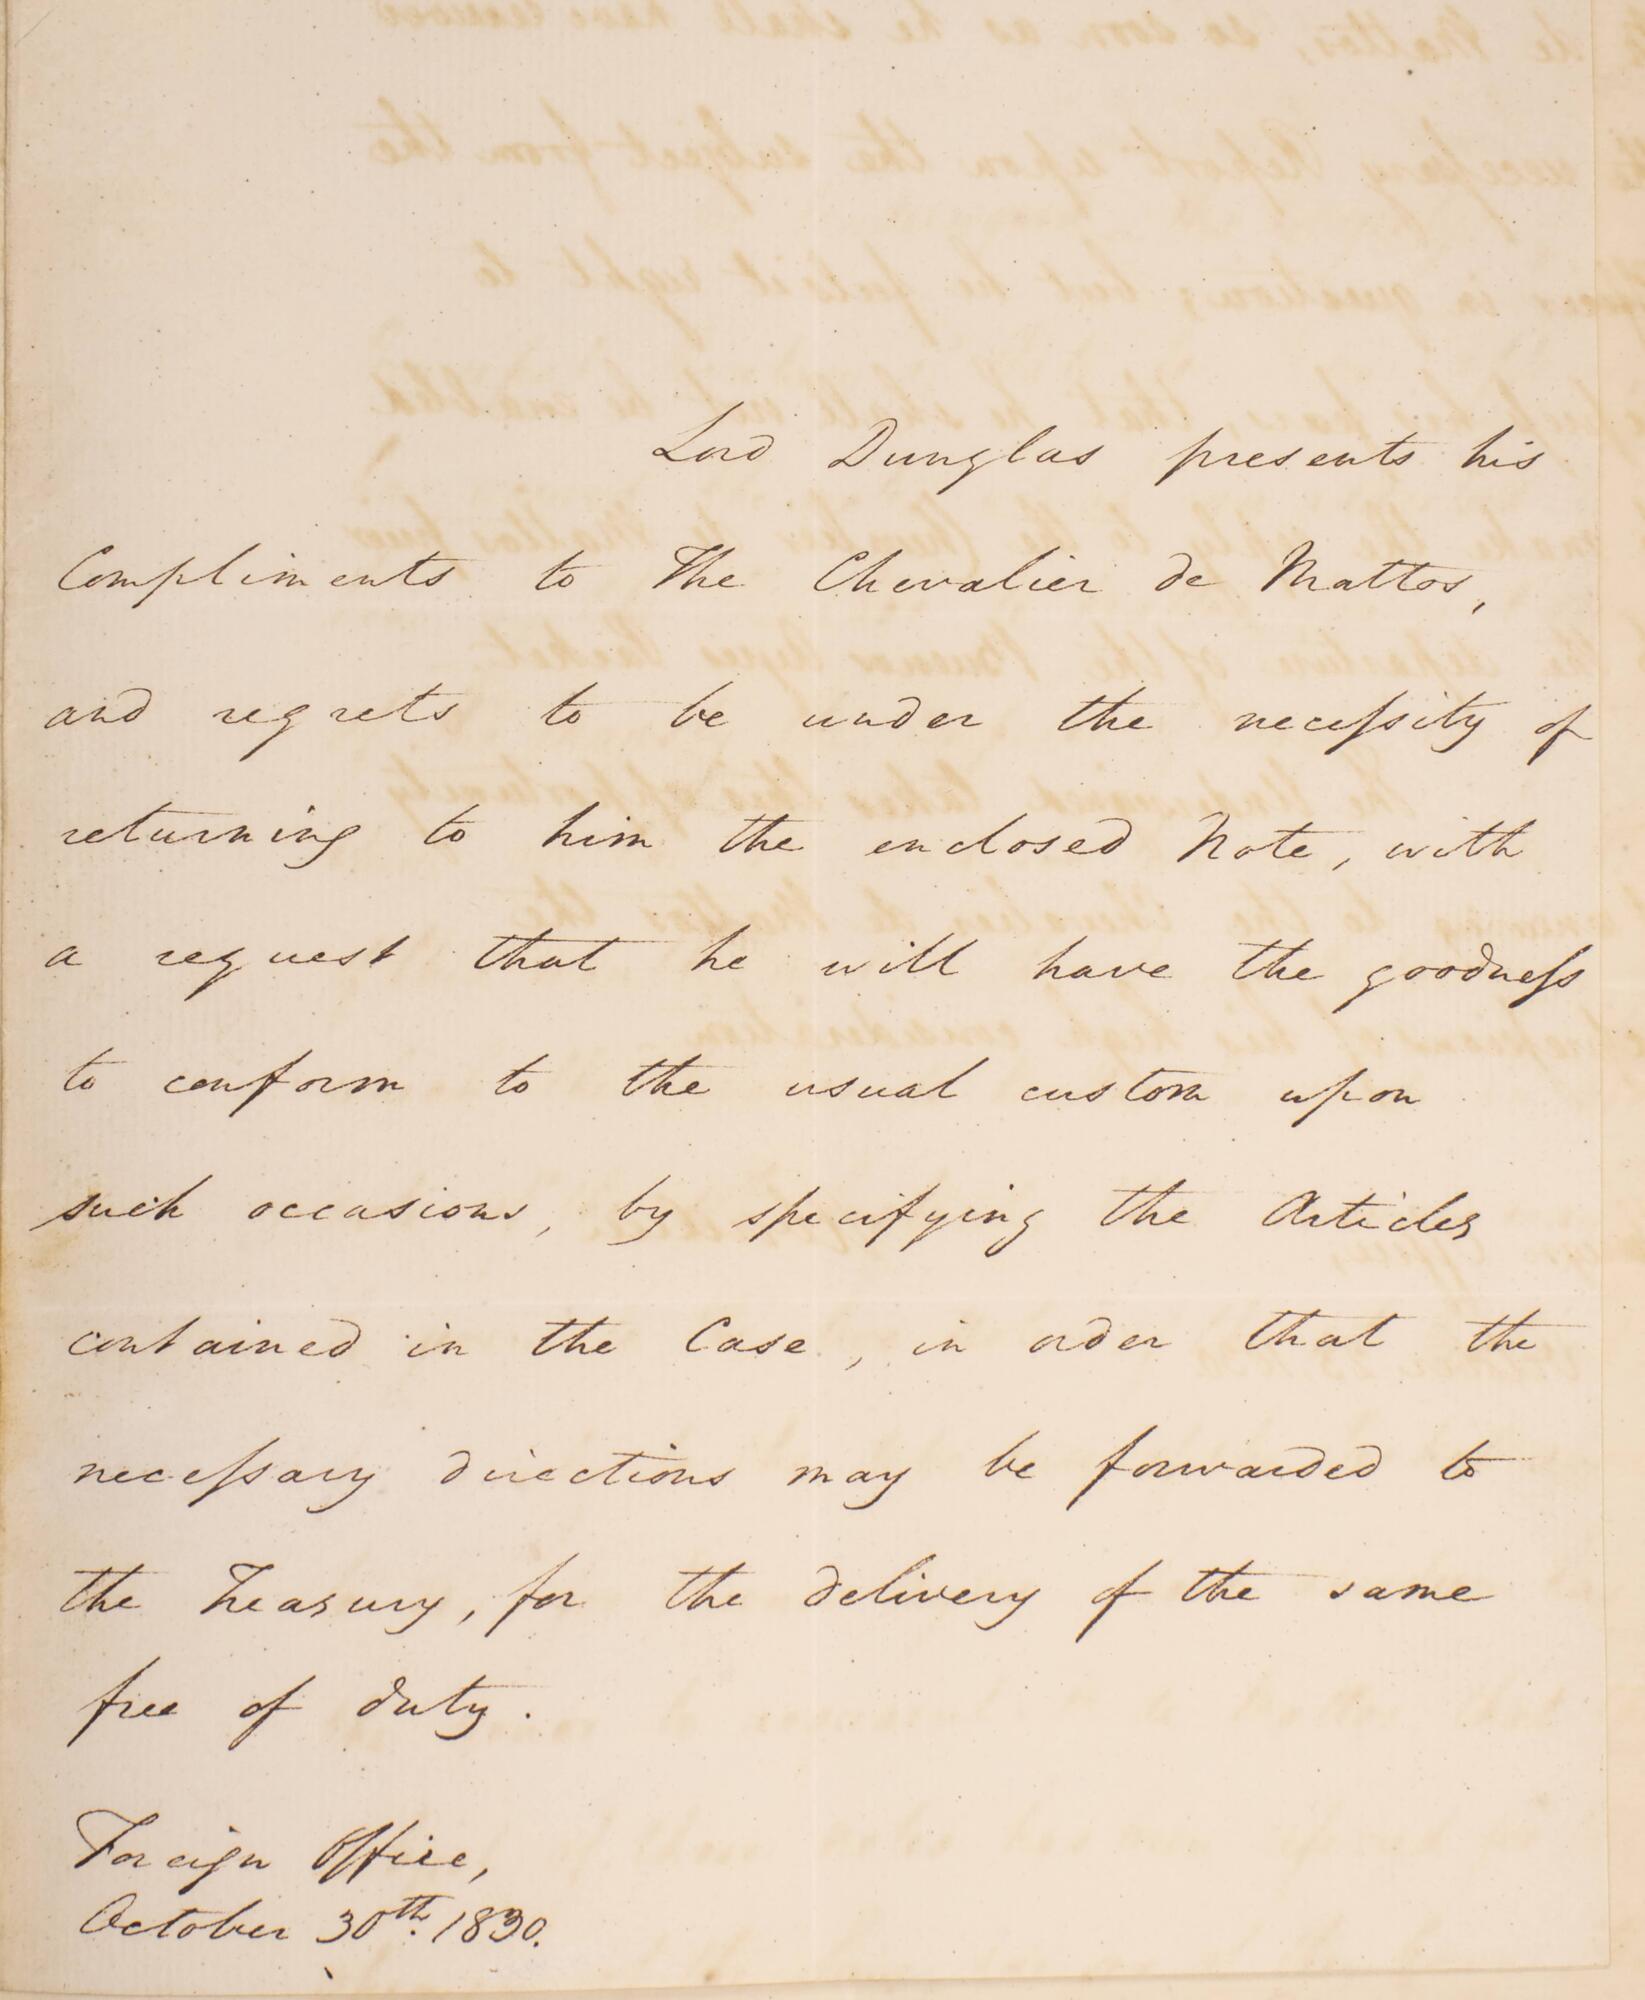 Lord Dunglas presents his
Compliments to The Chevalier de Mattos,
and regrets to be under the necessity of
returning to him the enclosed Note, with
a request that he will have the goodness
to conform to the usual custom upon
such occasions, by specifying the Articles
contained in the Case, in order that the
necessary directions may be forwarded to
the Treasury, for the delivery of the same
free of duty.
Foreign Office,
October 30th. 1830.